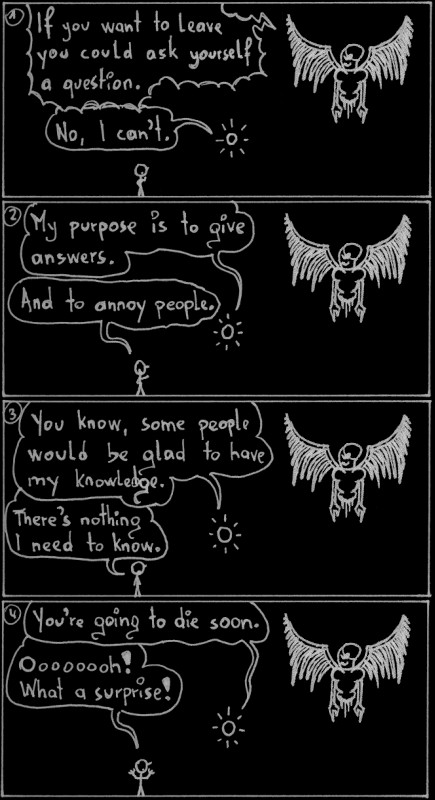 1
If you want to leave
you could ask yourself
a question.
No, I can't.
2
My purpose is to give
answers.
And to annoy people.
3
You know, some people
would be glad to have
my knowledge.
There's nothing
I need to know.
4
You're going to die soon.
Oooooooh!
What a surprise!